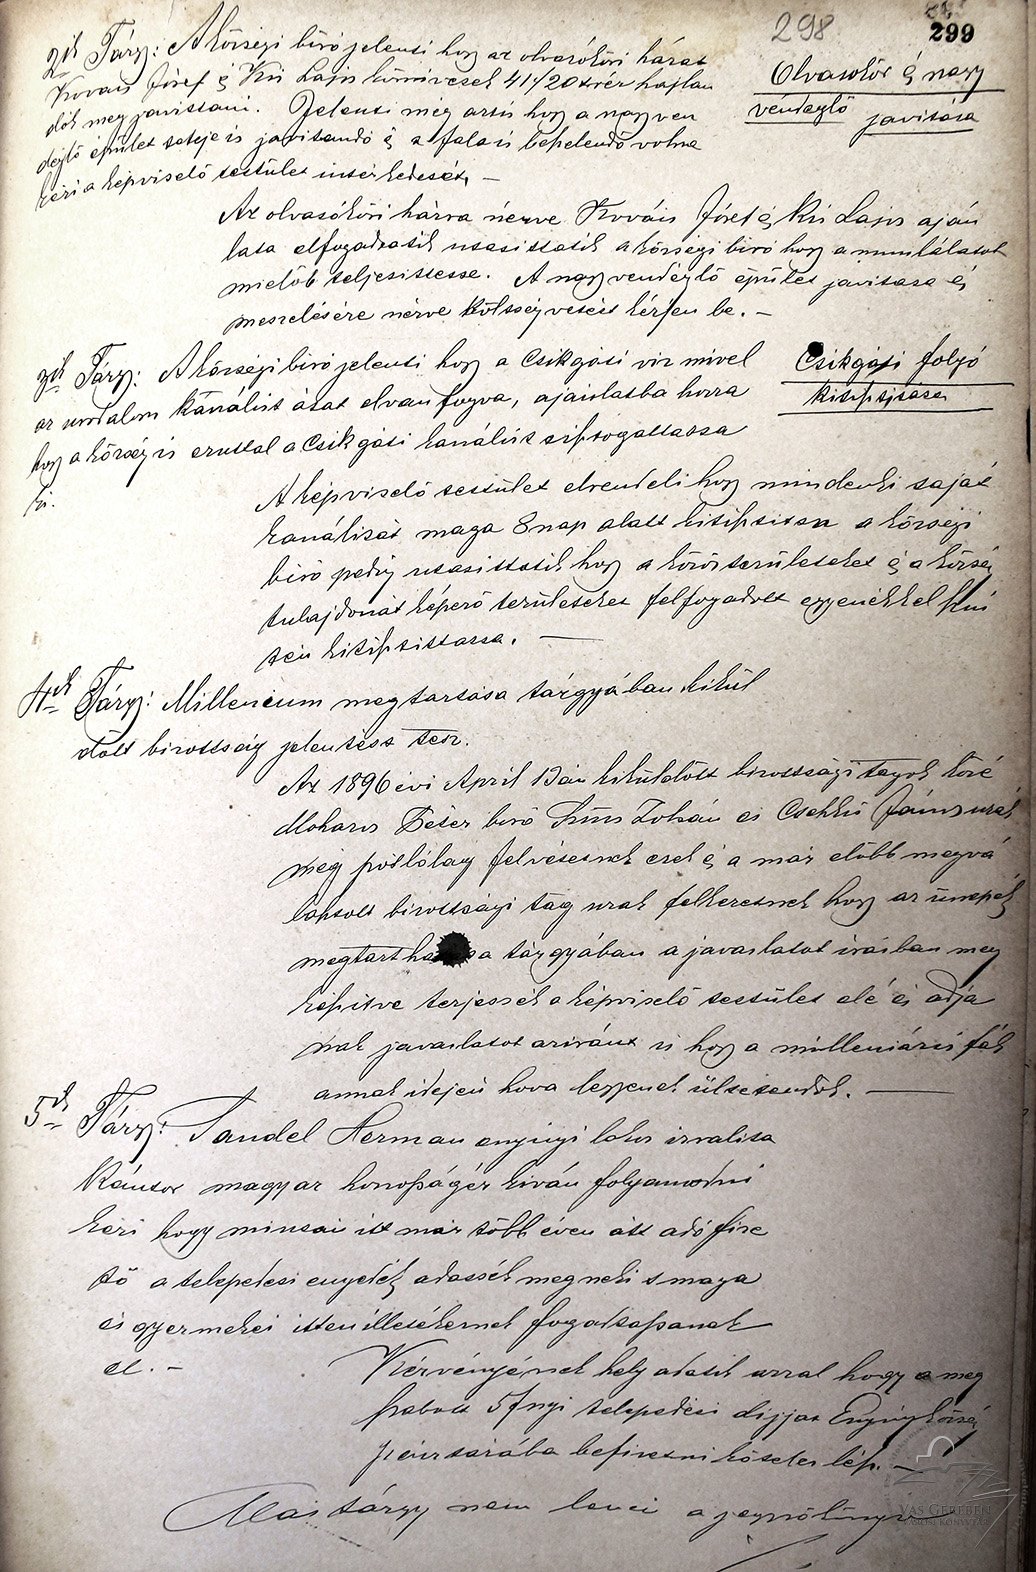 298
299
2ik Tárgy: A községi biró jelenti hogy az olvasóköri házat
Kovács József és Kis Lajos kőmivesek 41f 20 krér hajlan
dók meg javittani. Jelenti még azt is hogy a nagy ven
déglő épület teteje is javitandó és a falai is bepelendő volna
kéri a képviselő testület intézkedését, —
Olvasókör és nagy
vendéglő javitása
Az olvasóköri házra nézve Kovács József és Kis Lajos aján
lata elfogadtatik utasittatik a községi biró hogy a munkálatot
mielőb teljesittesse. A nagy vendéglő épület javitása és
meszelésére nézve költségvetést kérjen be. —
3ik Tárgy: A községi biró jelenti hogy a Csikgáti viz mivel
az uradalom kanálist ásat elvan fogva, ajánlatba hozza
hogy a község is ezuttal a Csikgáti kanálist
ki.
Csikgáti folyó
kitisztitása
A képviselő testület elrendeli hogy mindenki saját
kanálisát maga 8 nap alatt kitisztitsa a községi
biró pedig utasittatik hogy a közös területeket és a község
tulajdonát képező területeket felfogadott egyénekkel szin
tén kitisztittassa. —
4ik Tárgy: Millenium megtartása tárgyában kikül
dött bizottság jelentést tesz.
Az 1896 évi April 19án kiküldött bizottsági tagok közé
Moharos Péter biró Zoltán és János urak
még pótlólag felvétetnek ezek és a már előbb megvá
lasztott bizottsági tag urak felkéretnek hogy az ünnepély
megtarthatása tárgyában a javaslatot irásban meg
képitve terjesszék a képviselő testület elé és adja
nak javaslatot aziránt is hogy a milleniumi fák
annak idején hova legyenek ültetendők. —
5ik Tárgy: Tandel Herman enyingi lakos izralita
Kántor magyar honosságért kiván folyamodni
kéri hogy miután itt már több éven át adó fize
tő a telepedési engedély adassék meg neki s maga
és gyermekei illetékeznek fogadtassanak
el. —
Kérvényének hely adatik azzal hogy a meg
szabott 5 frnyi telepedési dijat Enying község
pénztárába befizetni köteles lész. —
Más tárgy nem lévén a jegyzőkönyv
VAS GEREBEN
VÁROSI KÖNYVTÁR